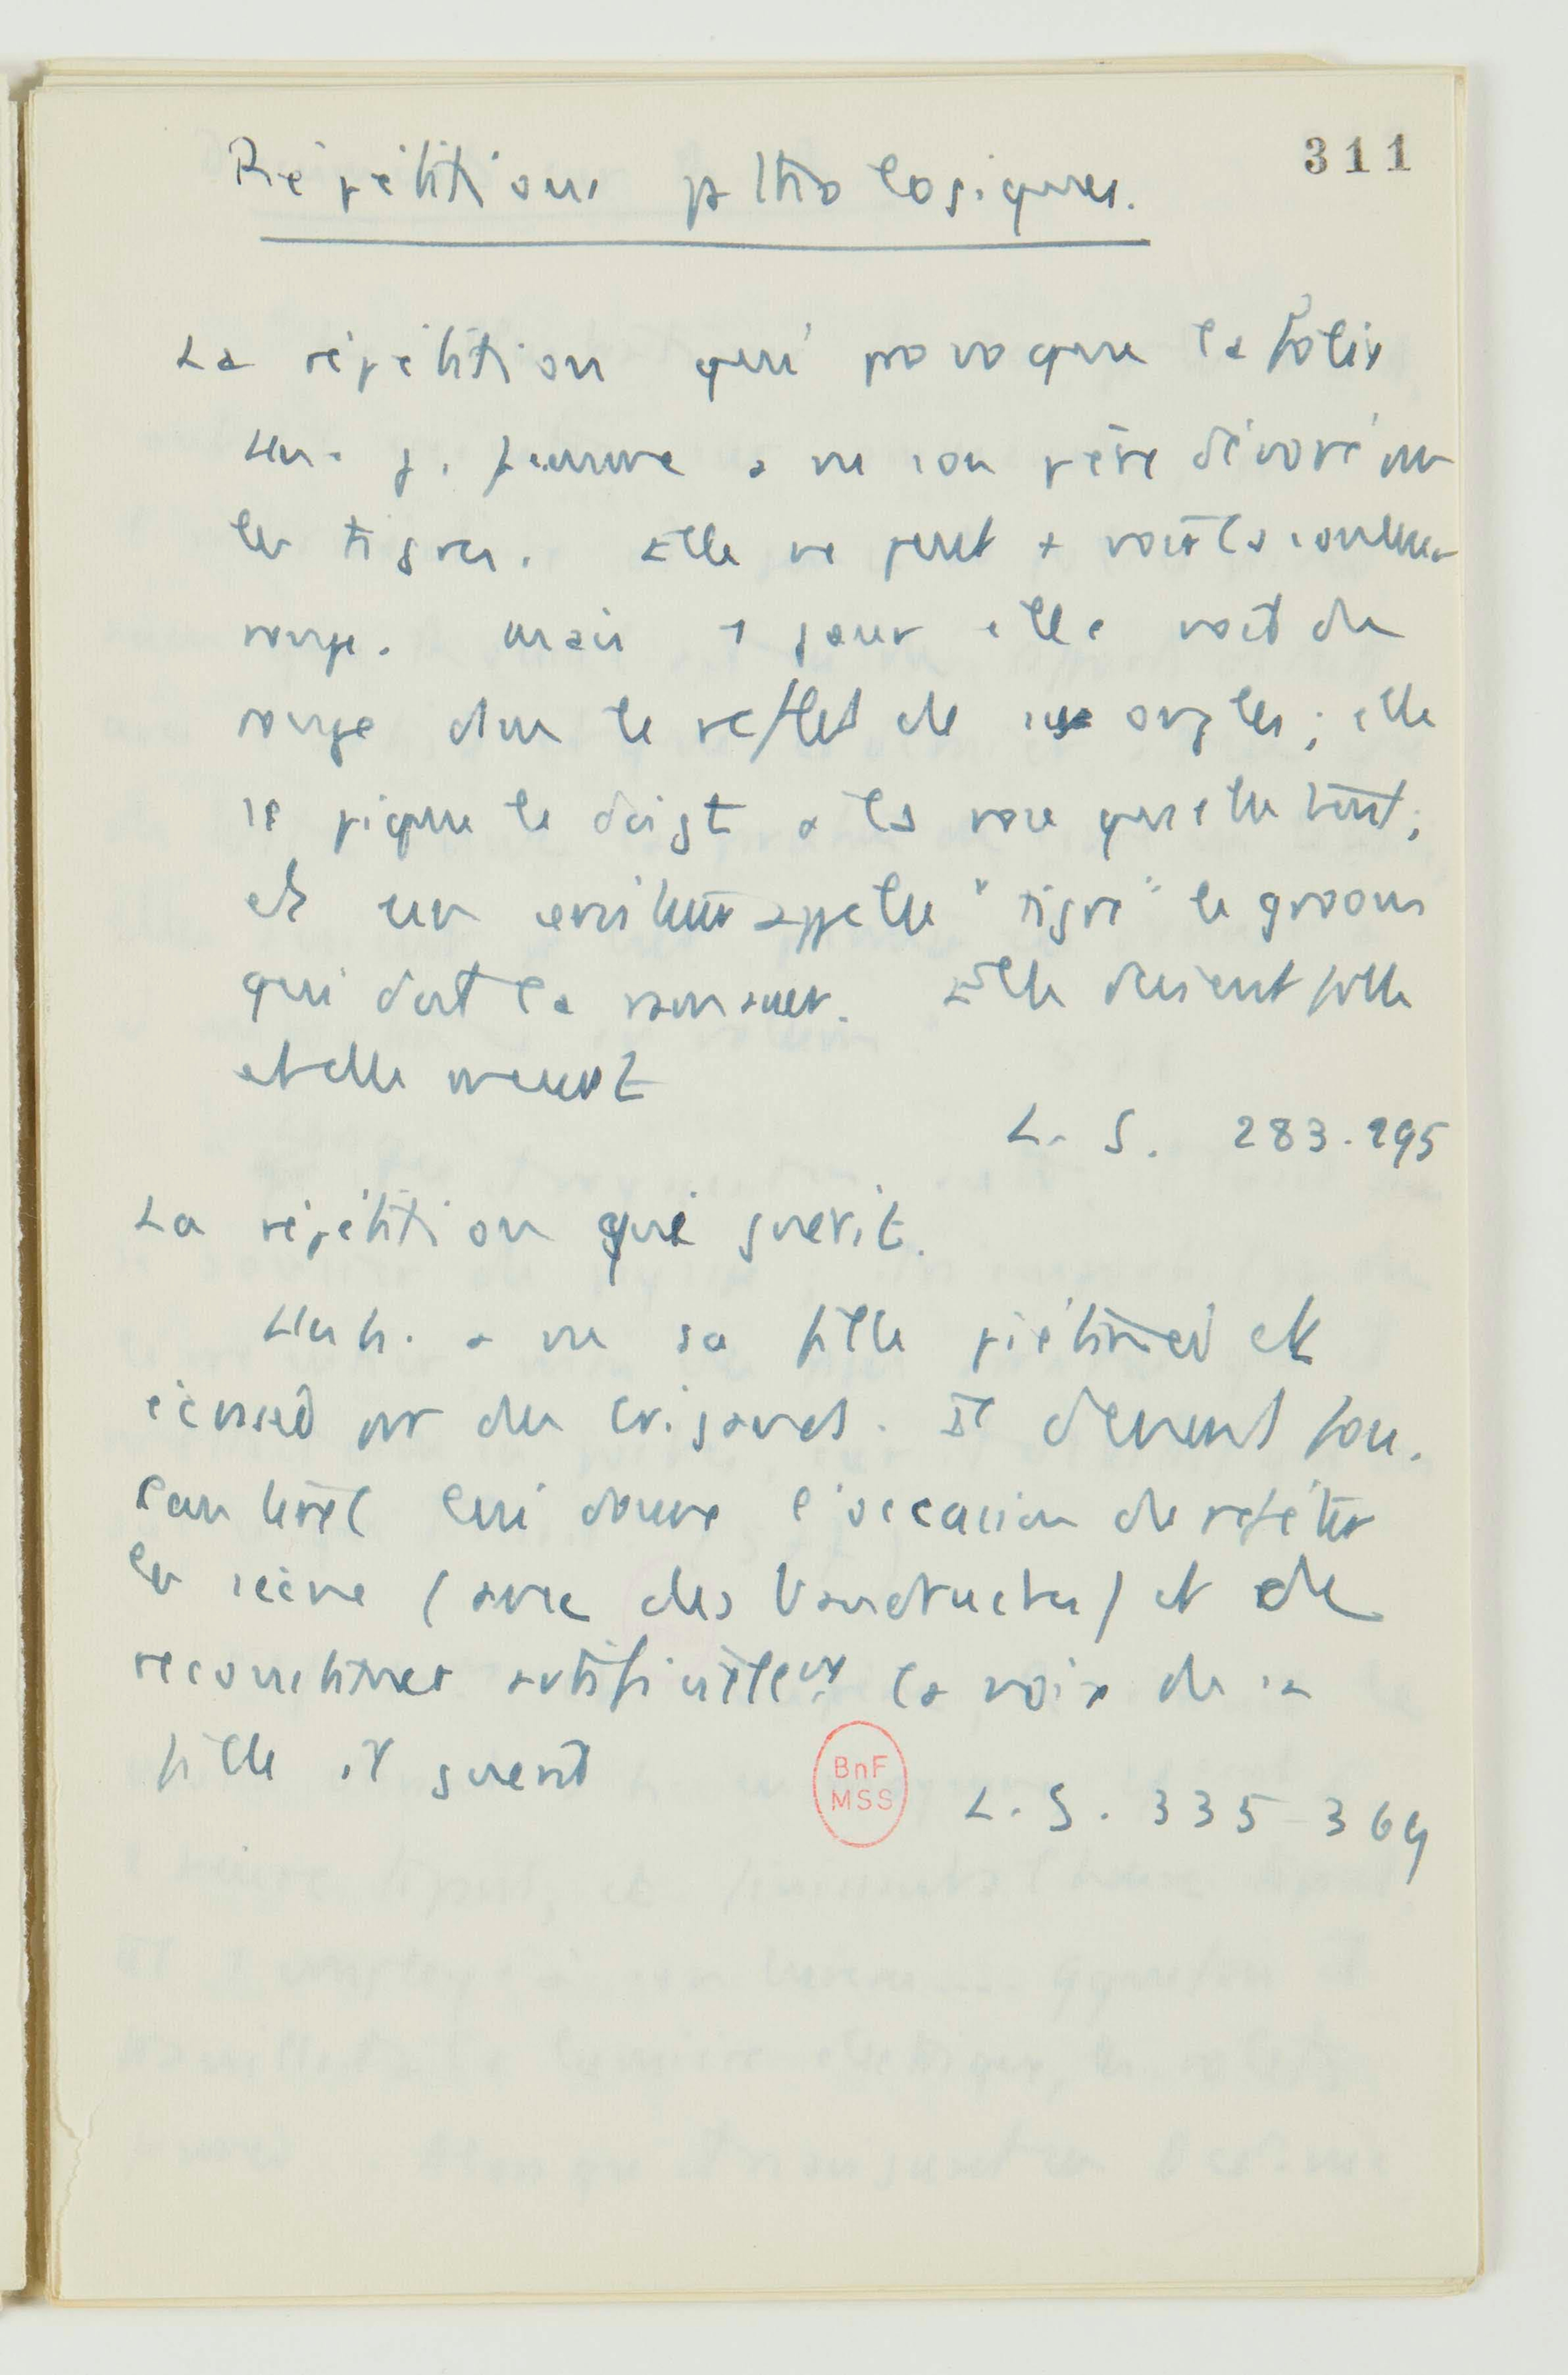 311
Répétitions pathologiques.
La répétition qui provoque la folie
Une j. femme a vu son père dévoré par
les tigres. Elle ne peut + voir la couleur
rouge. Mais 1 jour elle voit du
rouge dans le reflet de ses ongles ; elle
se pique le doigt à la rose qu'elle tient ;
et un appelle "tigre" le groom
qui doit la Elle devient folle
et elle meurt
L. S. 283-295
La répétition qui guérit.
Un h. a vu sa fille piétinée et
écrasée par des brigands. Il devient fou.
Canterel lui donne l'occasion de répéter
la scène (avec des baudruches) et de
reconstituer artificiellemt la voix de sa
fille il guérit
BnF
MSS
L. S. 335-369